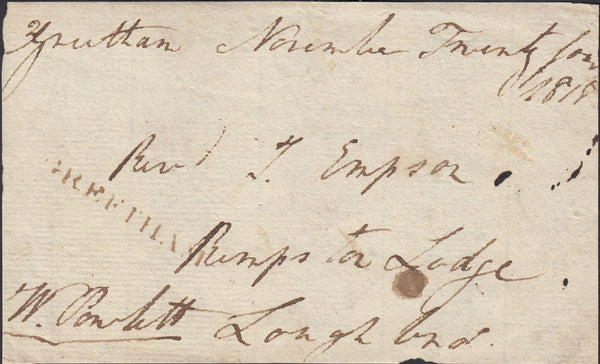 Greetham November Twenty four
1818
Revd T. Empson
GREETHA
Rempston Lodge
W. Powlett Loughbro.